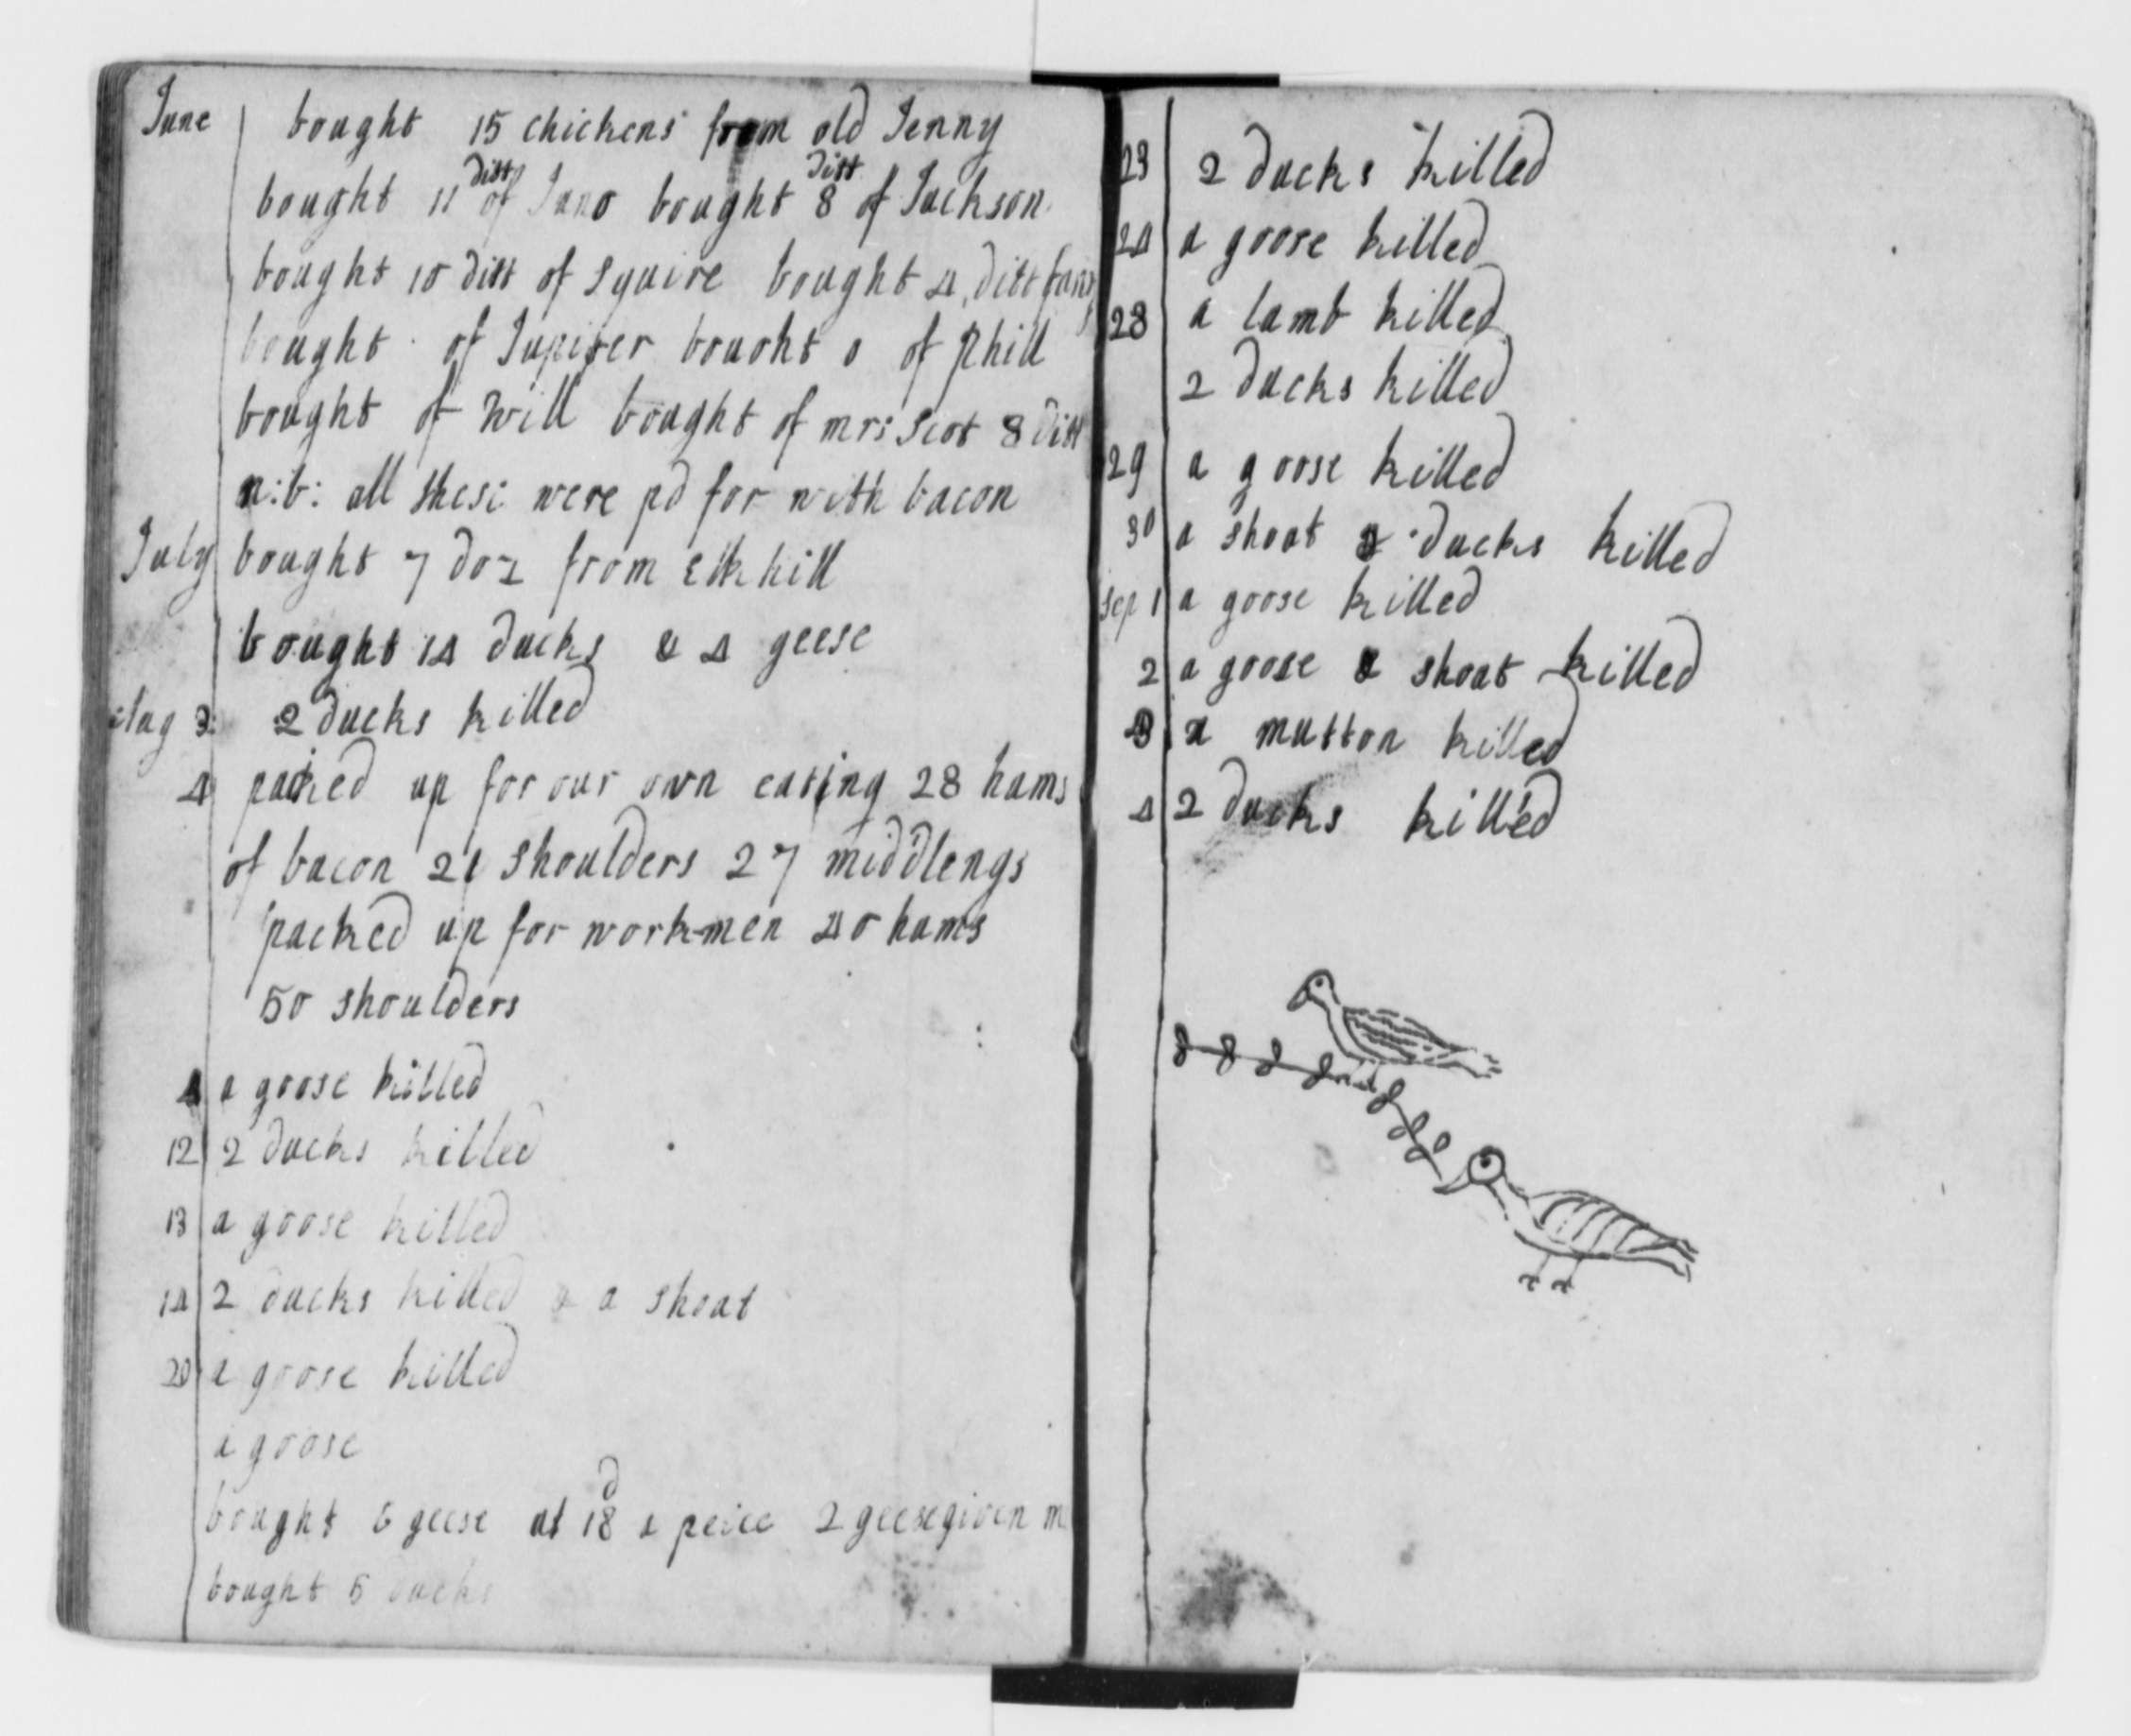 June bought 15 chickens from old Jenny
bought 11 ditt of Juno bought 8 ditt of Jackson
bought 10 ditt of squire bought 4 ditt
bought of Jupiter bought of Phill
bought of Will bought of mrs Scot 8 ditt
n:b: all these were pd for with bacon
July bought 7 doz from Elk hill
bought 14 ducks & 4 geese
Aug 3 2 ducks killed
4 packed up for our own eating 28 hams
of bacon 21 shoulders 27 middlengs
packed up for workmen 40 hams
50 shoulders
4 a goose killed
12 2 ducks killed
13 a goose killed
14 2 ducks killed & a shoat
20 a goose killed
a goose
bought 6 geese at 18d a peice 2 geese given
bought 5 ducks
23 2 ducks killed
24 a goose killed
28 a lamb killed
2 ducks killed
29 a goose killed
30 a shoat & ducks killed
Sep 1 a goose killed
2 a goose & shoat killed
3 a mutton killed
4 2 ducks killed